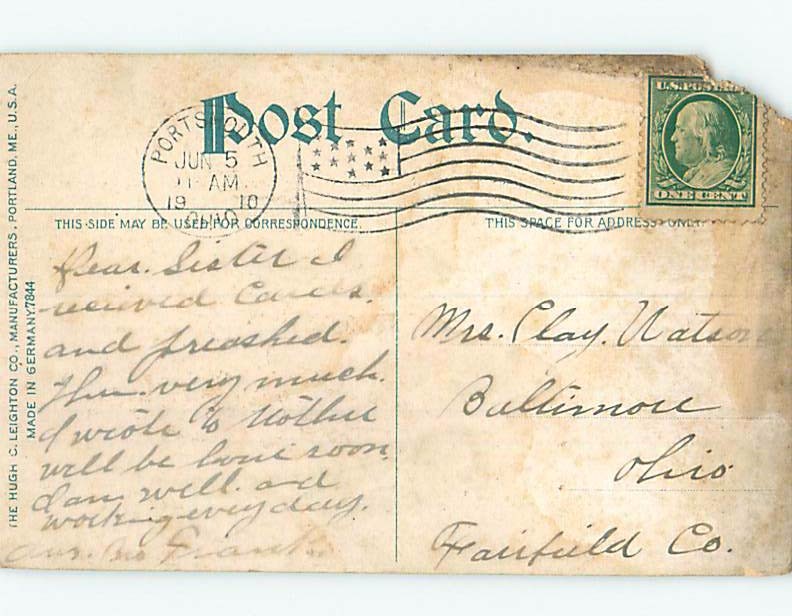 THE HUGH C. LEIGHTON CO., MANUFACTURERS, PORTLAND, ME., U.S.A.
MADE IN GERMANY. 7844
Post Card.
PORTSMOUTH
JUN 5
11 AM
1910
OHIO
U.S. POSTAGE
ONE CENT
THIS SIDE MAY BE USED FOR CORRESPONDENCE.
THIS SPACE FOR ADDRESS ONLY.
Dear. Sister I
received Cards.
and
very much.
I wrote to Mother
will be home soon.
I am well. and
working every day.
Frank.
Mrs. Clay. Watson
Baltimore
Ohio
Fairfield Co.